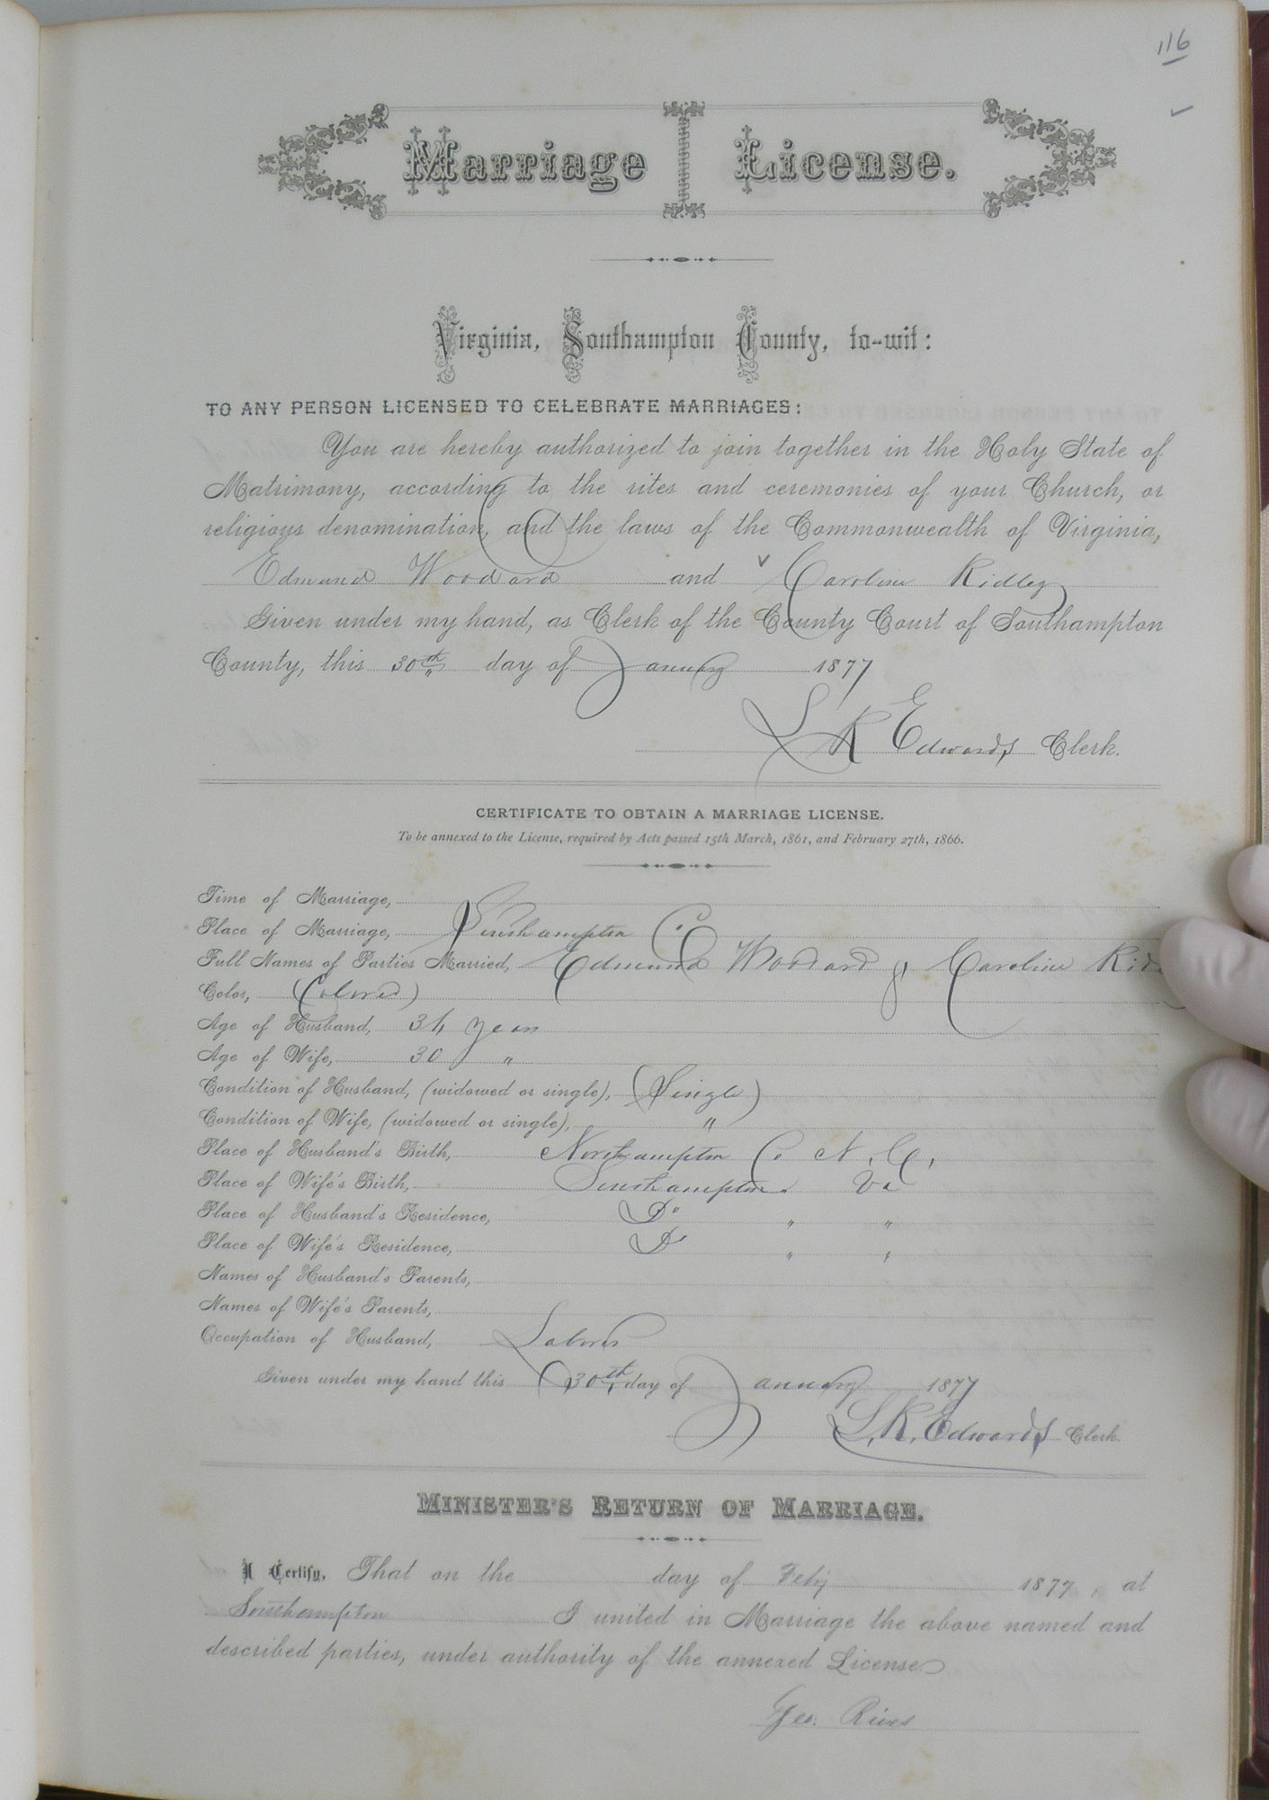 116
Marriage License.
Virginia, Southampton County, to-wit:
TO ANY PERSON LICENSED TO CELEBRATE MARRIAGES:
You are hereby authorized to join together in the Holy State of
Matrimony, according to the rites and ceremonies of your Church, or
religious denomination, and the laws of the Commonwealth of Virginia,
Edmund Woodard and Caroline Ridley
Given under my hand, as Clerk of the County Court of Southampton
County, this 30th day of January 1877
L R Edwards Clerk.
CERTIFICATE TO OBTAIN A MARRIAGE LICENSE.
To be annexed to the License, required by Acts passed 15th March, 1861, and February 27th, 1866.
Time of Marriage,
Place of Marriage, Southampton Co
Full Names of Parties Married, Edmund Woodard & Caroline Rid
Color, (Colored)
Age of Husband, 34 years
Age of Wife, 30 "
Condition of Husband, (widowed or single), (Single)
Condition of Wife, (widowed or single), "
Place of Husband's Birth, Northampton Co N. C.
Place of Wife's Birth, Southampton. Va
Place of Husband's Residence, Do " "
Place of Wife's Residence, Do " "
Names of Husband's Parents,
Names of Wife's Parents,
Occupation of Husband, Laborer
Given under my hand this 30th day of January 1877
L. R. Edwards Clerk
MINISTER'S RETURN OF MARRIAGE.
I Certify, That on the day of Feby 1877, at
Southampton I united in Marriage the above named and
described parties, under authority of the annexed License
Geo. Rives